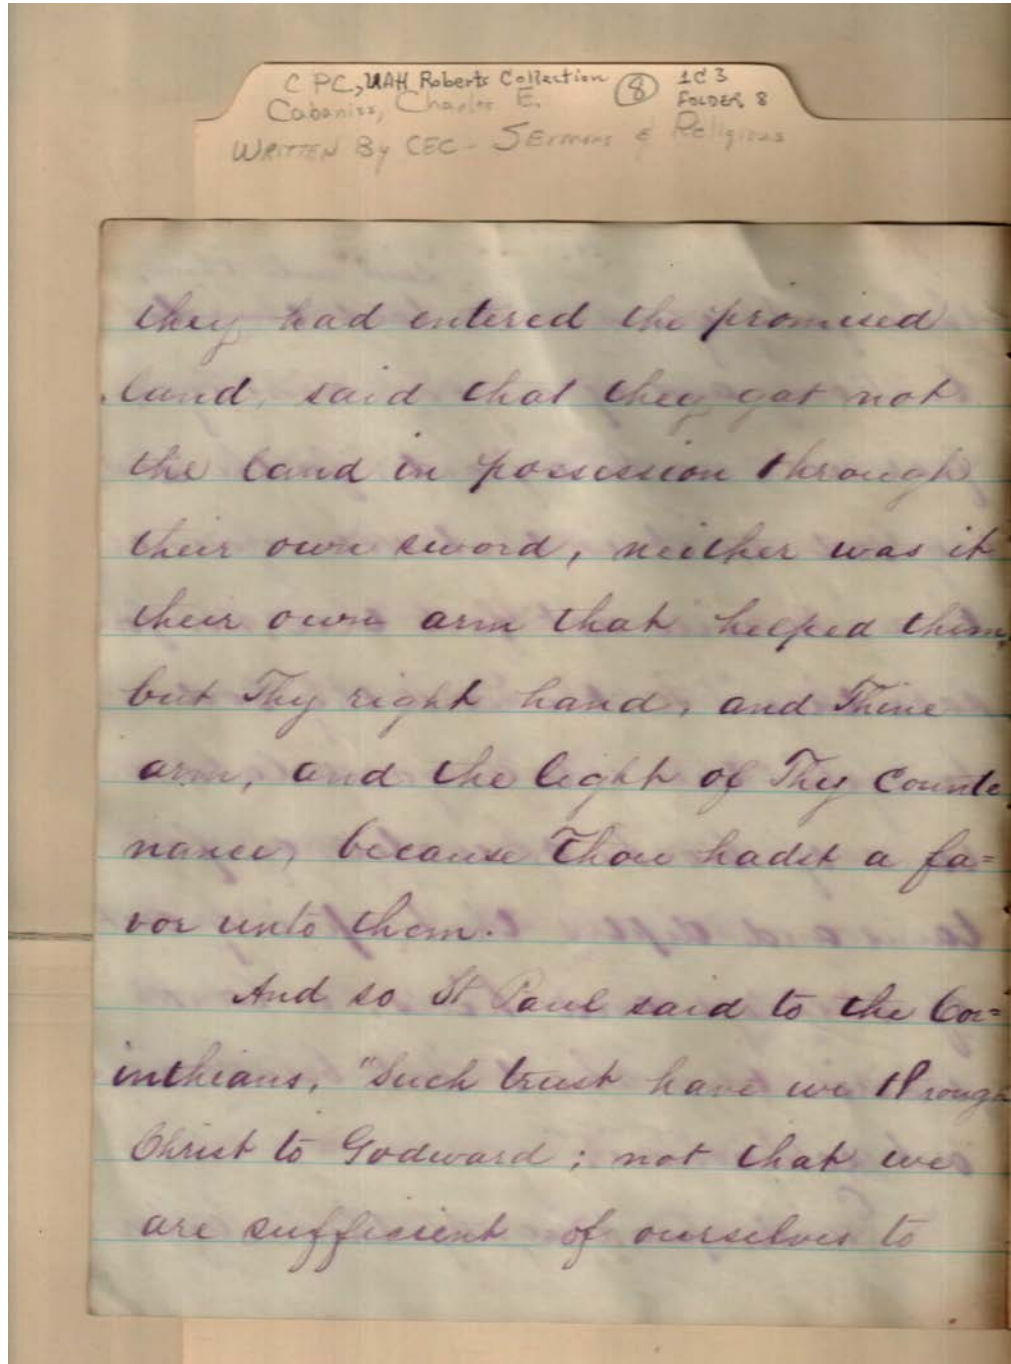 C PC, UAH Roberts Collection (8) 1C3
Cabaniss, Charles E. FOLDER 8
WRITTEN By CEC - SERMONS & Religious
they had entered the promised
land, said that they got not
the land in possession through
their own sword, neither was it
their own arm that helped them,
but Thy right hand, and Thine
arm, and the light of Thy Counte
nance, because Thou hadst a fa=
vor unto them.
And so St Paul said to the Cor=
inthians, "Such trust have we through
Christ to Godward; not that we
are sufficient of ourselves to